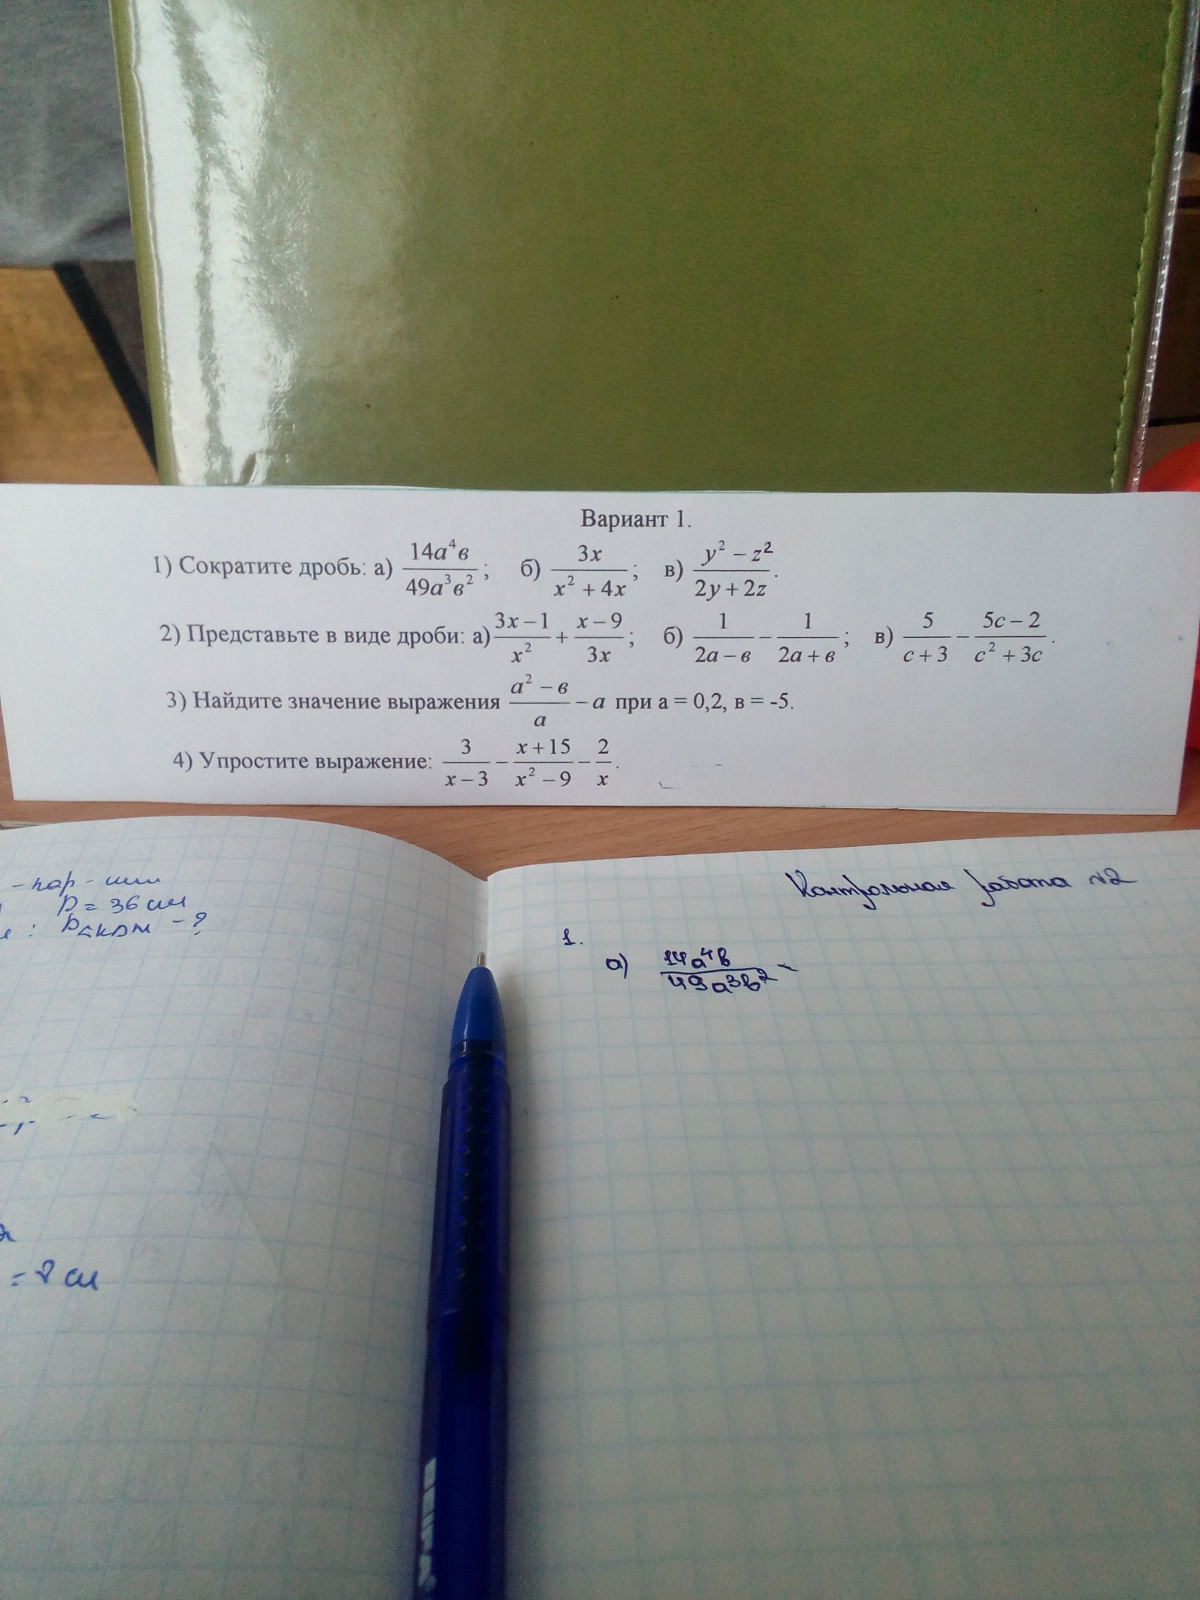 Вариант 1.
1) Сократите дробь: а) 14a⁴в/49a³в²; б) 3x/(x² + 4x); в) (y² − z²)/(2y + 2z).
2) Представьте в виде дроби: а) (3x − 1)/x² + (x − 9)/3x; б) 1/(2a − в) − 1/(2a + в); в) 5/(c + 3) − (5c − 2)/(c² + 3c).
3) Найдите значение выражения (a² − в)/a − a при a = 0,2, в = -5.
4) Упростите выражение: 3/(x − 3) − (x + 15)/(x² − 9) − 2/x.
P = 36 см
= 8 см
Контрольная работа №2
1.
а) 14a⁴в/49a³в² =